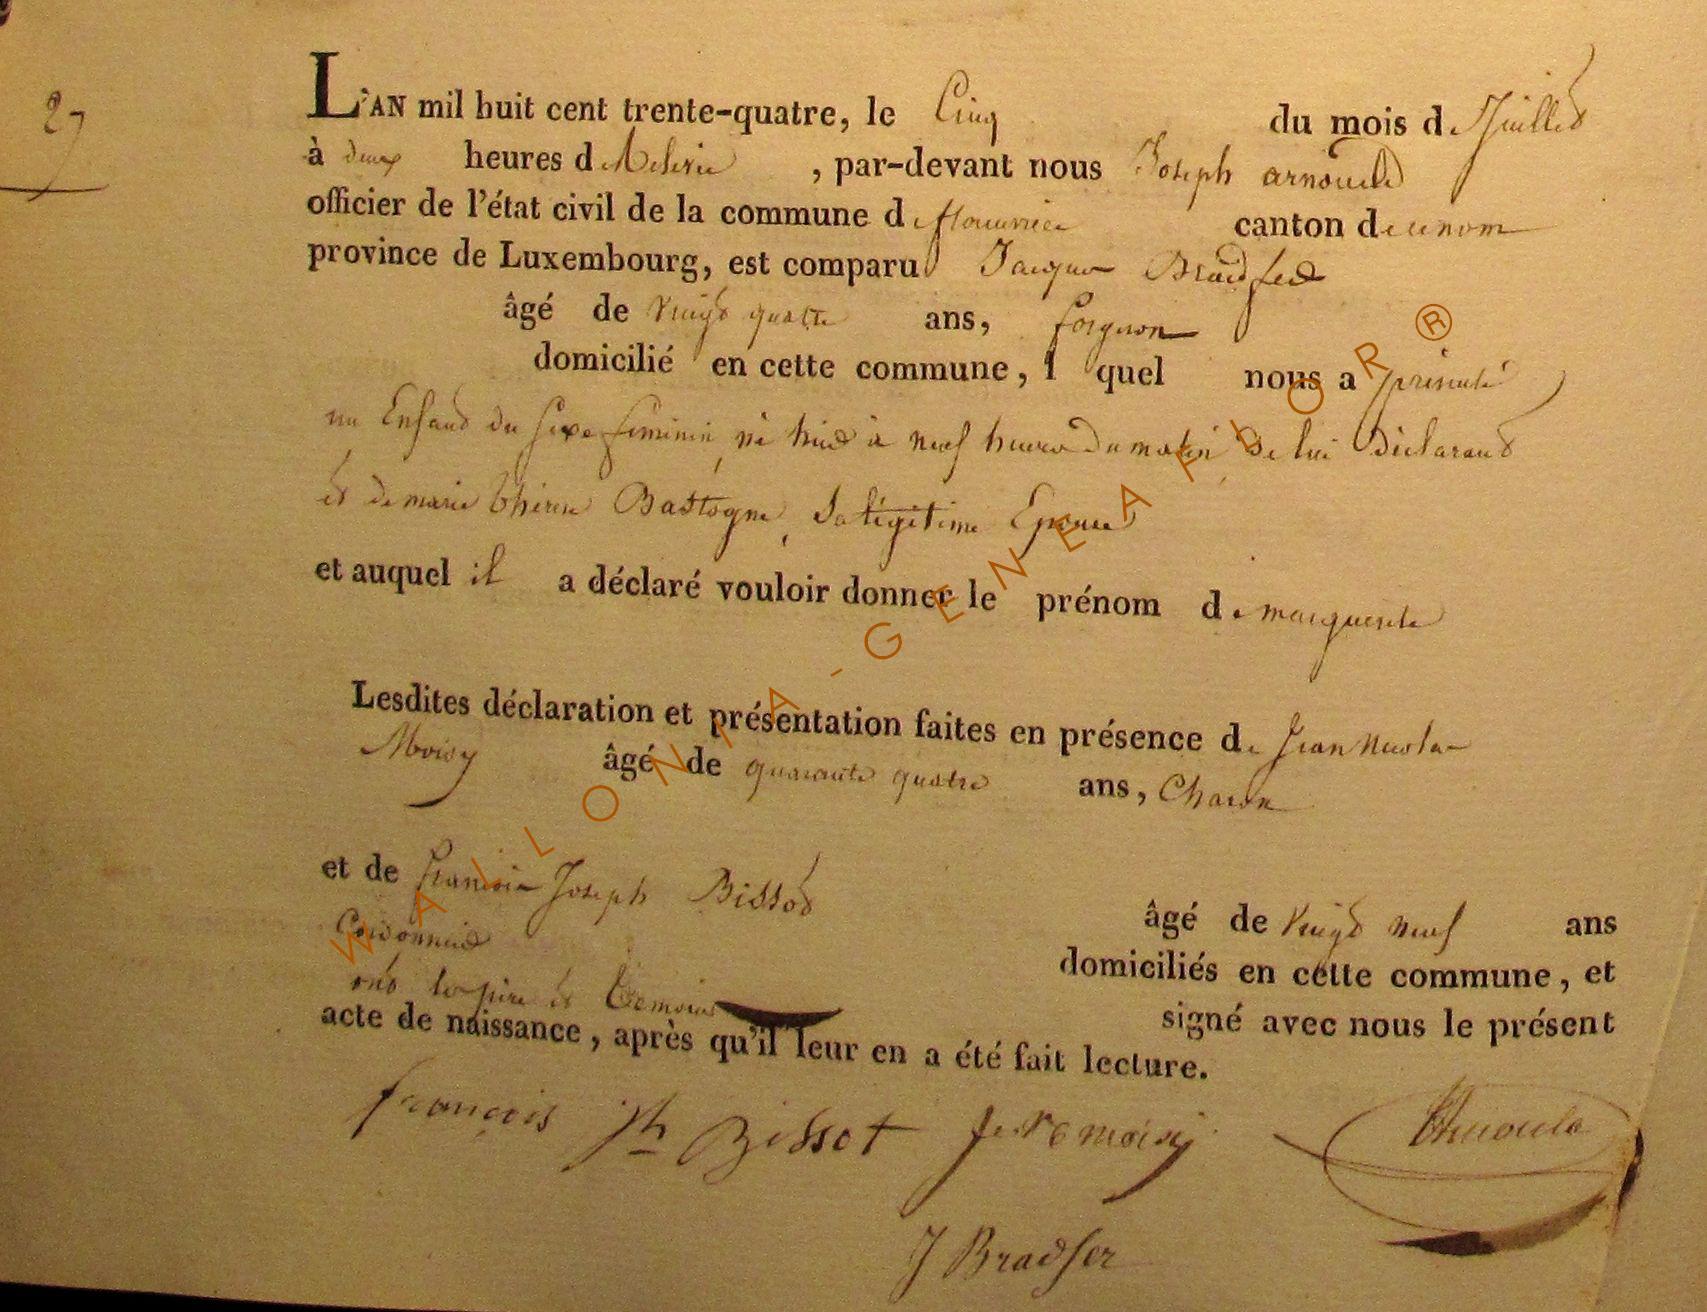 27
L'AN mil huit cent trente-quatre, le Cinq du mois de Juillet
à deux heures de Relevée, par-devant nous Joseph arnould
officier de l'état civil de la commune de canton de
province de Luxembourg, est comparu Jacques Bradfer
âgé de vingt quatre ans, forgeron
domicilié en cette commune, l quel nous a présenté
un Enfant du sexe feminin né hier à neuf heures du matin de lui Déclarant
et de marie thérèse Bastogne, Sa légitime Epouse
et auquel il a déclaré vouloir donner le prénom de marguerite
Lesdites déclaration et présentation faites en présence de Jean Nicolas
Moisy âgé de quarante quatre ans, Charon
et de François Joseph Bissot
âgé de vingt neuf ans
Cordonnier
domiciliés en cette commune, et
ont les père et témoins signé avec nous le présent
acte de naissance, après qu'il leur en a été fait lecture.
françois Jh Bissot moisy
J Bradfer
WALLONIA-GENEAFLOR ®